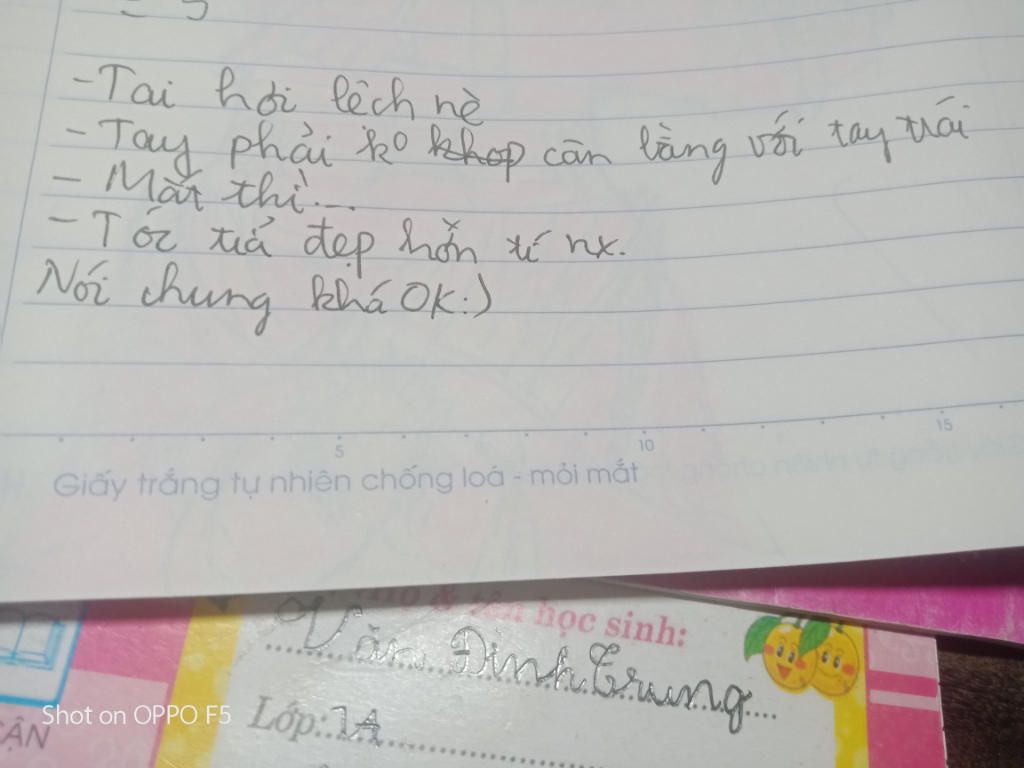 - Tai hơi lệch nè
- Tay phải ko khop cân bằng với tay trái
- Mắt thì...
- Tóc tiả đẹp hơn xí nx.
Nói chung khá OK:)
5 10 15
Giấy trắng tự nhiên chống loá - mỏi mắt
Họ & tên học sinh:
Văn Đình Trung
Lớp: 1A
ẬN
Shot on OPPO F5